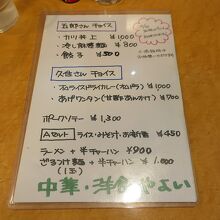 五郎さん チョイス
・カツ丼 上 ¥1000
・冷し麻婆麺 ¥800
・餃子 ¥500
久住さん チョイス
・オムライスドライカレー(オムドラ) ¥1000
・あげワンタン(甘酢あんかけ) ¥1,200
ポークソテー ¥1300
Aセット ライス・みそ汁・お漬け物 ¥450
ラーメン + 半チャーハン ¥900
ざるつけ麺 + 半チャーハン ¥1,000
中華・洋食 やよい